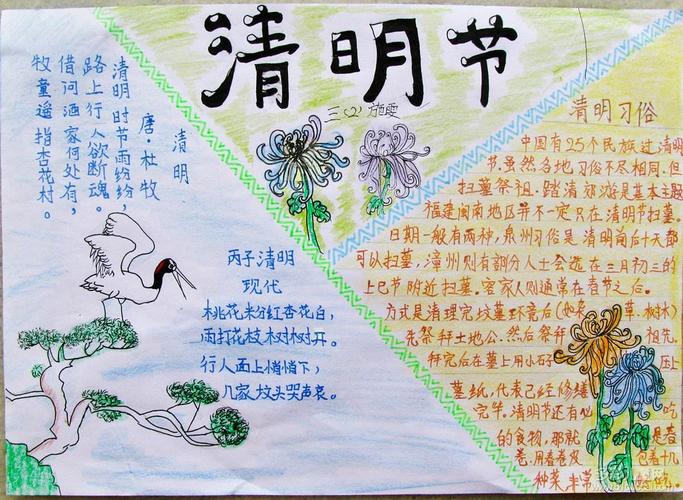 清明节
三(2) 施雯
清明
唐·杜牧
清明时节雨纷纷，
路上行人欲断魂。
借问酒家何处有，
牧童遥指杏花村。
丙子清明
现代
桃花米分红杏花白，
雨打花枝树树开。
行人面上悄悄下，
几家坟头哭声哀。
清明习俗
中国有25个民族过清明
节.虽然各地习俗不尽相同.但
扫墓祭祖.踏清郊游是基本主题
福建闽南地区并不一定只在清明节扫墓。
日期一般有两种，泉州习俗是清明前后十天都
可以扫墓，漳州则有部分人士会选在三月初三的
上巳节附近扫墓。客家人则通常在春节之后。
方式是清理完坟墓环境后(如来 草.树木)
先祭拜土地公.然后祭拜 祖先.
拜完后在墓上用小石子 压上
墓纸,代表已经修缮
完毕。清明节还有 吃
的食物，那就 是春
卷.用春卷皮 包着十几
种菜